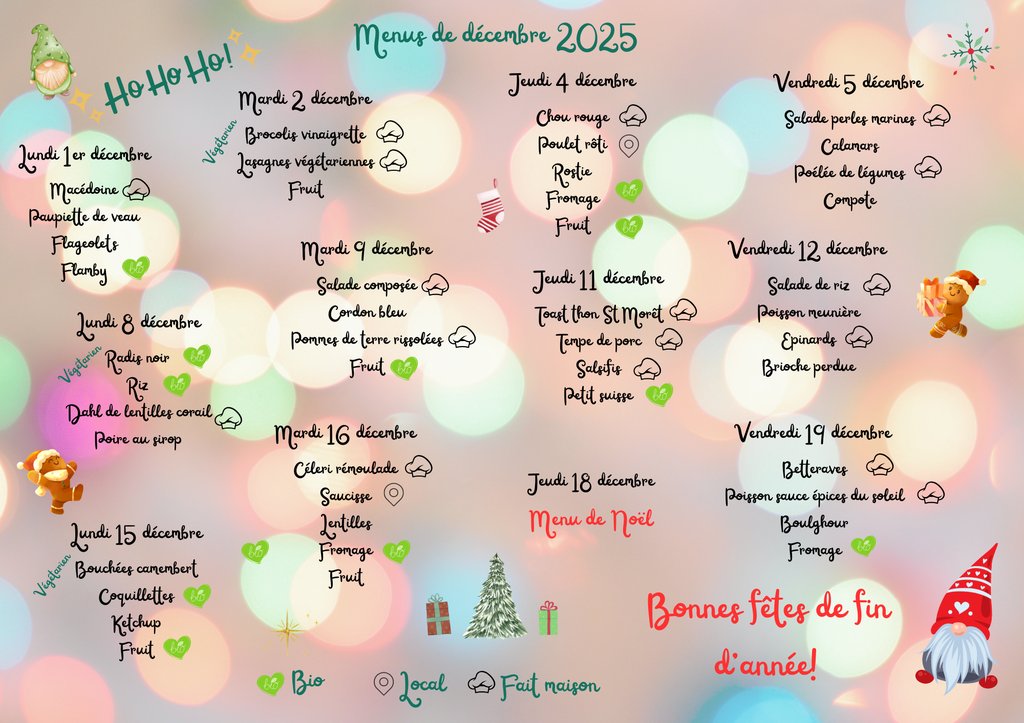 Menus de décembre 2025
Ho Ho Ho!
Lundi 1er décembre
Macédoine
Paupiette de veau
Flageolets
Flamby
bio
Mardi 2 décembre
Végétarien
Brocolis vinaigrette
Lasagnes végétariennes
Fruit
Jeudi 4 décembre
Chou rouge
Poulet rôti
Rostie
Fromage
bio
Fruit
bio
Vendredi 5 décembre
Salade perles marines
Calamars
Poélée de légumes
Compote
Lundi 8 décembre
Végétarien
Radis noir
bio
Riz
bio
Dahl de lentilles corail
Poire au sirop
Mardi 9 décembre
Salade composée
Cordon bleu
Pommes de terre rissolées
Fruit
bio
Jeudi 11 décembre
Toast thon St Morêt
Tempe de porc
Salsifis
Petit suisse
bio
Vendredi 12 décembre
Salade de riz
Poisson meunière
Epinards
Brioche perdue
Lundi 15 décembre
Végétarien
Bouchées camembert
Coquillettes
bio
Ketchup
Fruit
bio
Mardi 16 décembre
Céleri rémoulade
Saucisse
Lentilles
bio
Fromage
bio
Fruit
Jeudi 18 décembre
Menu de Noël
Vendredi 19 décembre
Betteraves
Poisson sauce épices du soleil
Boulghour
Fromage
bio
Bonnes fêtes de fin
d'année!
bio
Bio
Local
Fait maison